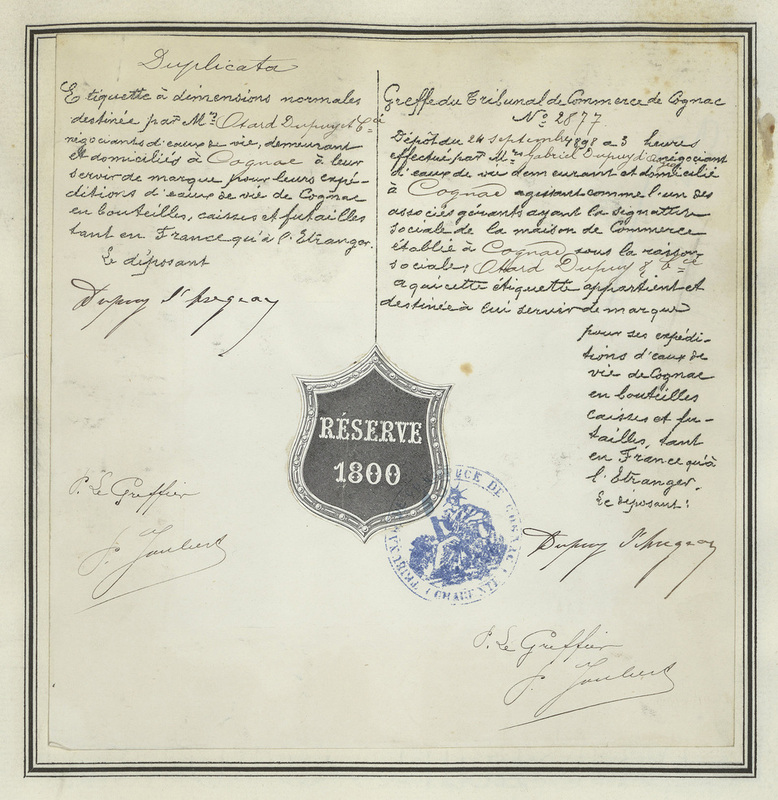 Duplicata
Etiquette à dimensions normales
destinée par Mrs Otard Dupuy et Cie
négociants d'eaux de vie, demeurant
et domiciliés à Cognac à leur
servir de marque pour leurs expé-
ditions d'eaux de vie de Cognac
en bouteilles, caisses et futailles
tant en France qu'à l'Etranger.
Le déposant
Dupuy d'Angeac
P. Le Greffier
P. Joubert
Greffe du Tribunal de Commerce de Cognac
No 2877
Dépôt du 24 septembre 1898 à 3 heures
effectué par Mr Gabriel Dupuy d'Angeac négociant
d'eaux de vie demeurant et domicilié
à Cognac agissant comme l'un des
associés gérants ayant la signature
sociale de la maison de Commerce
établie à Cognac sous la raison
sociale, Otard Dupuy & Cie
à qui cette étiquette appartient et
destinée à lui servir de marque
pour ses expédi-
tions d'eaux de
vie de Cognac
en bouteilles
caisses et fu-
tailles, tant
en France qu'à
l'Etranger.
Le déposant:
Dupuy d'Angeac
P. Le Greffier
P. Joubert
RÉSERVE
1800
TRIBUNAL DE COMMERCE DE COGNAC
(CHARENTE)